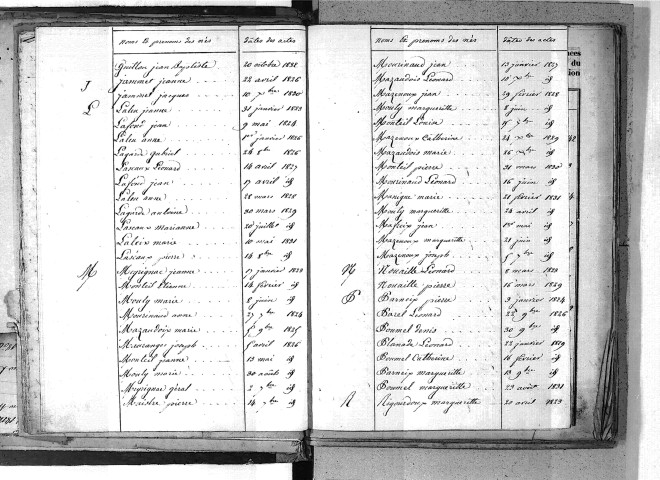 noms et prenoms des nés dates des actes
Guillon jean Aystide 20 octobre 1831
J jammet jeanne 22 avril 1826
jammet jacques 10 xbre 1830
L Lalu jeanne 31 janvier 1823
Lafond jean 9 mai 1824
Lalu anne 1er janvier 1826
Lagard gabriel 24 8bre 1826
Lascaux Léonard 14 avril 1827
Lafond jean 17 avril id
Lalu anne 22 mars 1828
Lagarde antoine 30 mars 1829
Lascaux marianne 20 juillet id
marie 10 mai 1831
Lascaux pierre 14 8bre id
M Meyrignac jeanne 17 janvier 1823
Monteil Etienne 14 février id
Mouly marie 8 juin id
Mourinaud anne 27 7bre 1824
Mazaudois marie 5 9bre 1825
joseph 5 avril 1826
Monteil jeanne 13 mai id
Mouly marie 30 août id
Meyrignac géral 2 7bre id
pierre 14 7bre id
noms et prenoms des nés dates des actes
Mourinaud jean 13 janvier 1827
Mazaudois Léonard 10 xbre id
Mazenoux jean 29 février 1828
Mouly margueritte 2 juin id
Monteil Louise 7 8bre id
Mazenoux Catherine 24 xbre 1829
Mazaudois marie 26 xbre id
Monteil pierre 21 mars 1830
Mourinaud Léonard 16 juin id
Manique marie 21 février 1831
Mouly margueritte 24 avril id
jean 1er mai id
Mazenoux margueritte 21 juin id
Mazenoux joseph 5 7bre id
N Nouaille Léonard 8 mars 1823
Nouaille pierre 16 mars 1829
P Parneix pierre 9 janvier 1824
Paret Léonard 22 9bre 1826
Pommet denis 30 9bre id
Planade Léonard 22 janvier 1829
Pommel Catherine 16 février id
Parneix margueritte 13 9bre id
Pommel margueritte 23 août 1831
R Rigourdoux margueritte 20 avril 1823